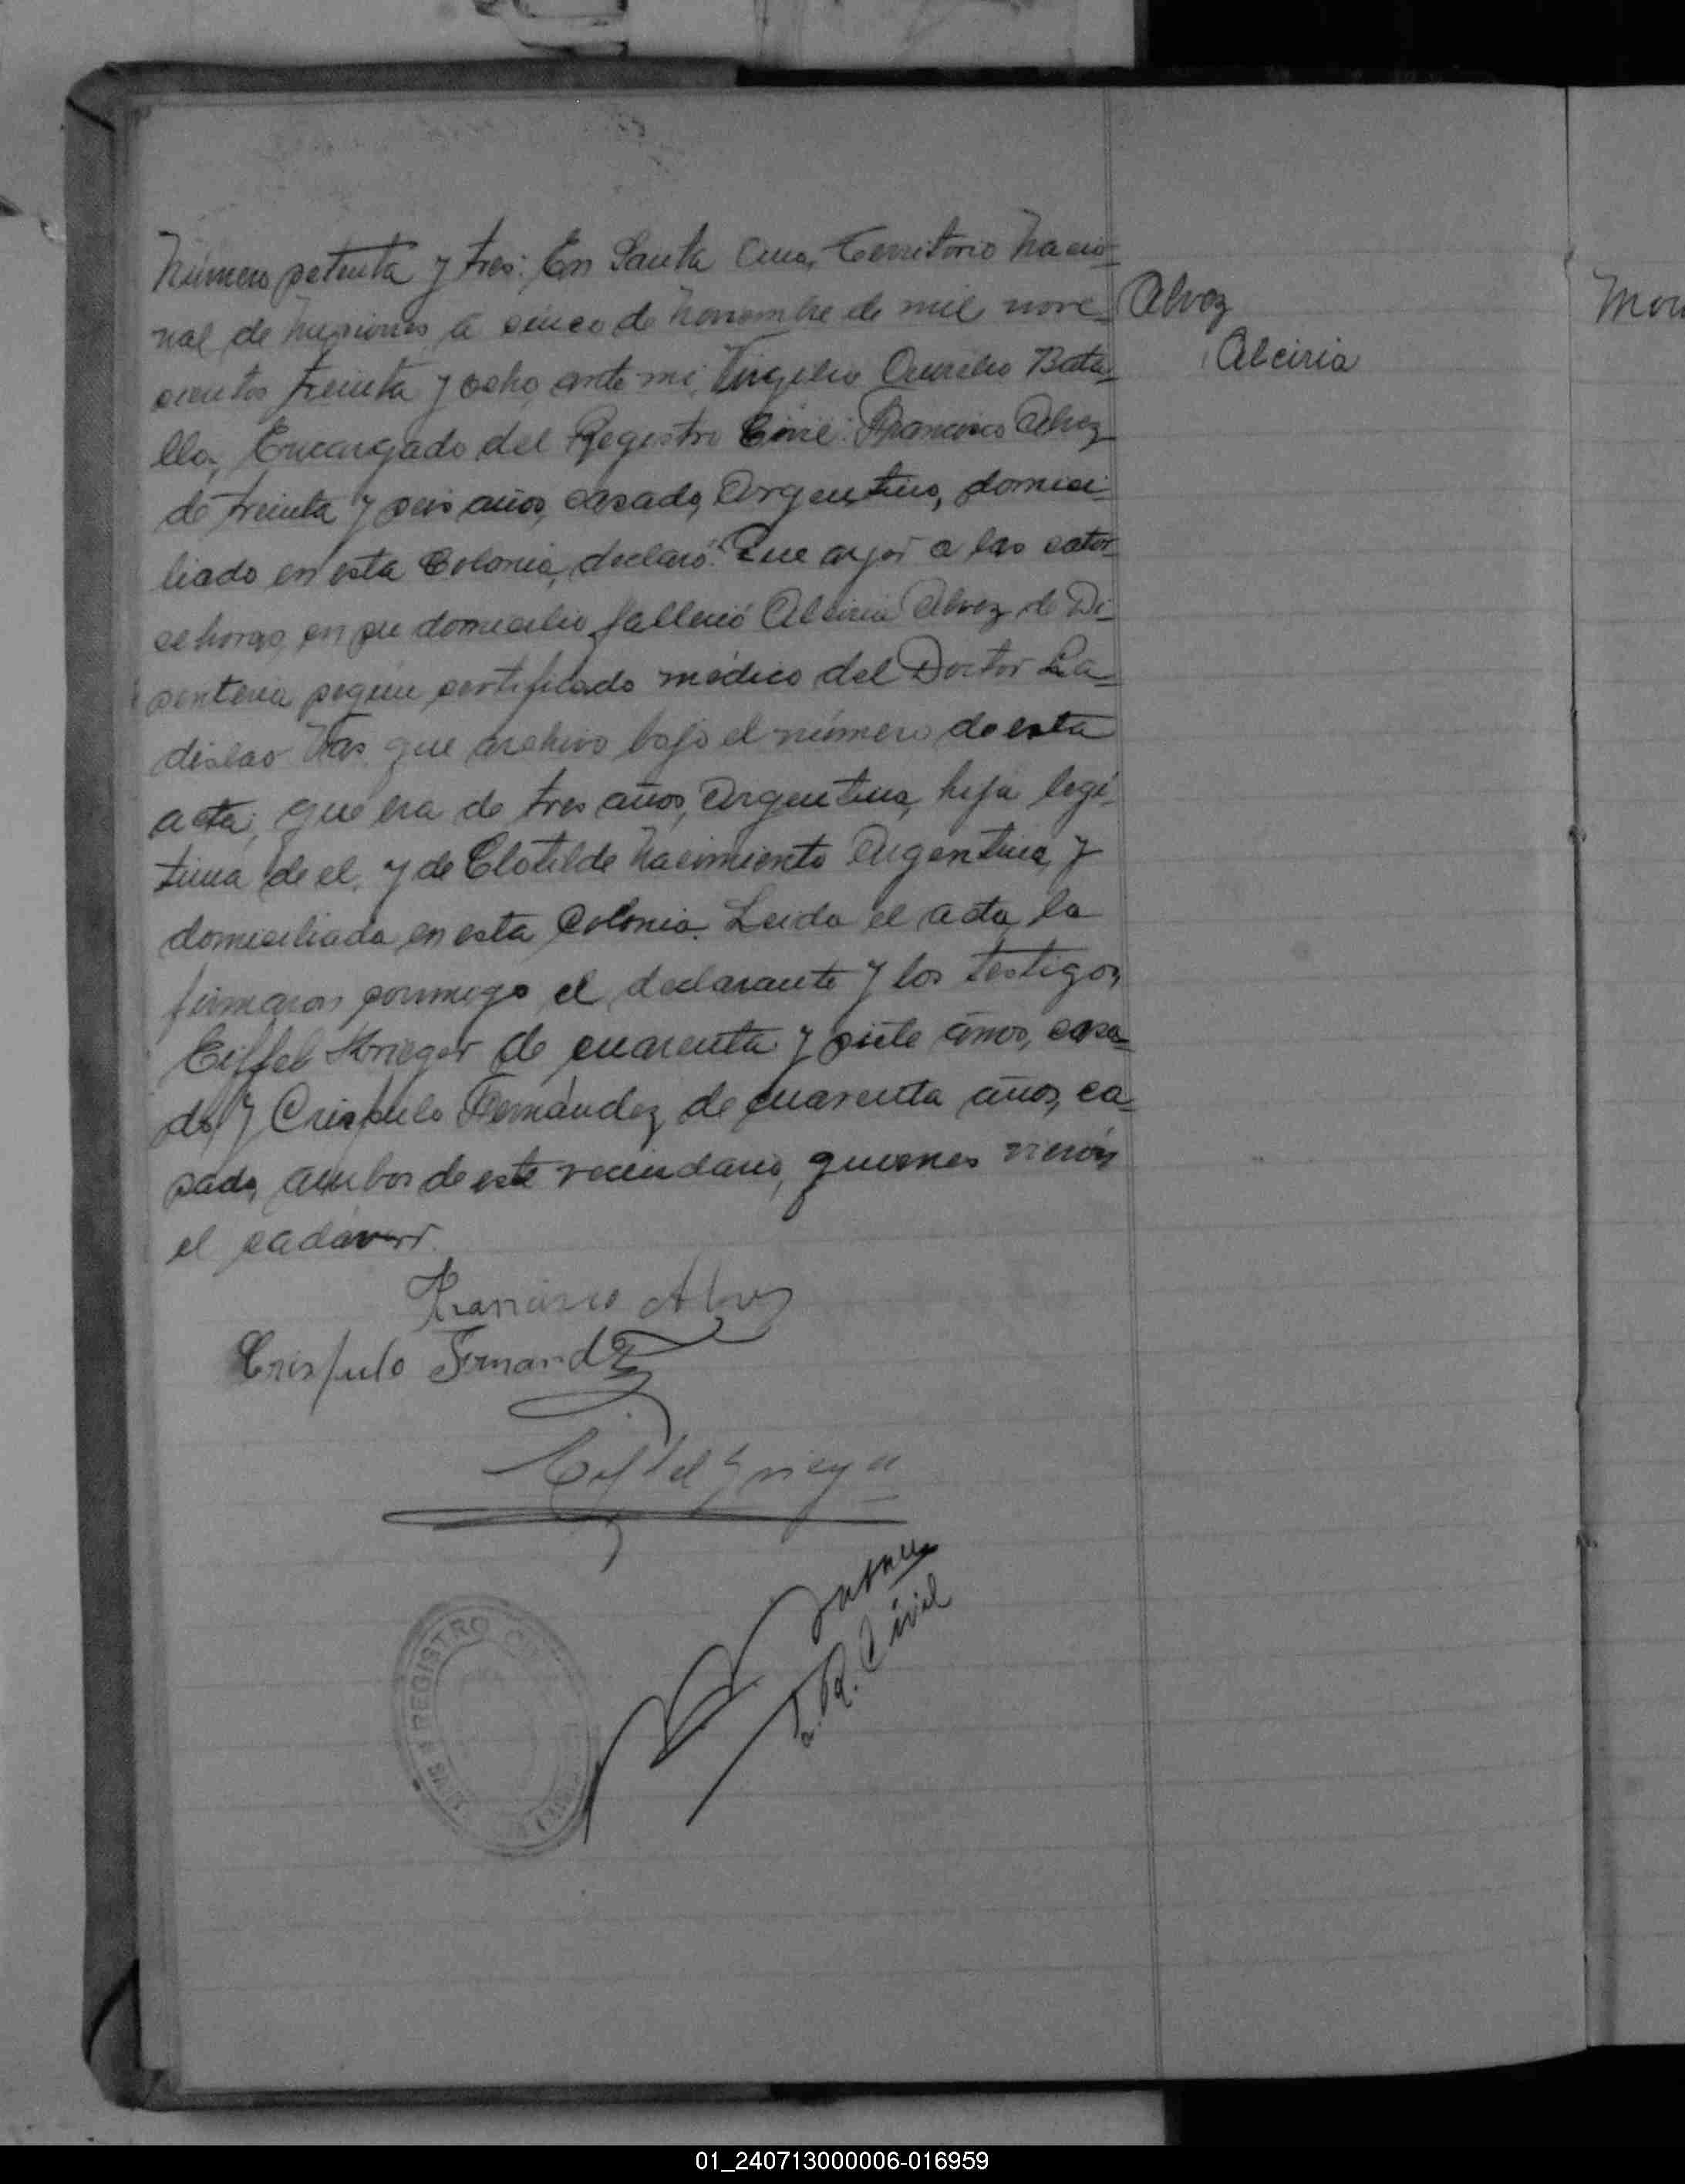 Número setenta y tres: En Santa Ana, Territorio Nacio-
nal de Misiones, a cinco de Noviembre de mil nove-
cientos treinta y ocho, ante mi, Virgilio Aurelio Bata-
lla, Encargado del Registro Civil: Francisco Alvez
de treinta y seis años, casado, Argentino, domici-
liado en esta Colonia, declaró: Que ayer a las cator-
ce horas, en su domicilio falleció Alciria Alvez de Di-
senteria según certificado médico del Doctor La-
dislao que archivo bajo el número de esta
acta, que era de tres años, Argentina, hija legi-
tima de el, y de Clotilde Nacimiento Argentina, y
domiciliada en esta Colonia. Leida el acta, la
firmaron conmigo el declarante y los testigos,
Eiffel Krieger de cuarenta y siete años, casa-
do, y Crispulo Fernández de cuarenta años, ca-
sado, ambos de este vecindario, quienes vieron
el cadáver.
Alvez
Alciria
Mor
Francisco Alvez
Crispulo Fernandez
Eiffel Krieger
E. R. Civil
REGISTRO
01_240713000006-016959